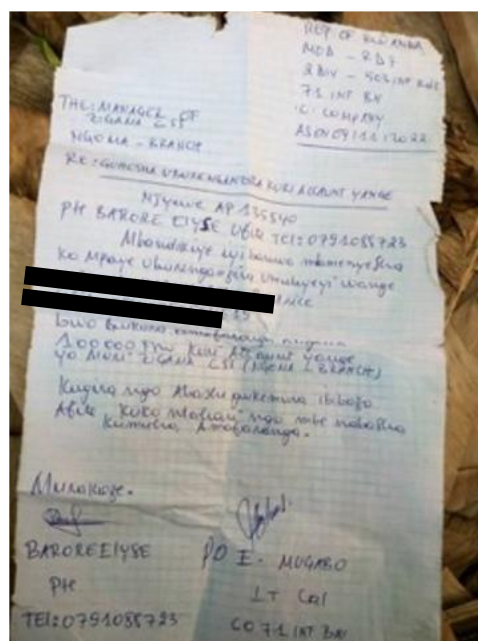 REP OF RWANDA
MOD - RDF
2 DIV - 503 INF BDE
71 INF BN
'C' COMPANY
AS ON 09/11/2022
THE: MANAGER OF
ZIGAMA CSS
NGOMA - BRANCH
RE: GUHESHA UBURENGANZIRA KURI ACCOUNT YANGE
Njyewe AP 135540
Pte BARORE ElYSE Ufite TEl: 0791088723
Mbandikiye iyi baruwa mbamenyesha
ko Mpaye Uburenganzira Umubyeyi wange
bwo Kubona
100 000 frw Kuri Account yange
yo muri ZIGAMA CSS (NGOMA - BRANCH)
Kugira ngo Abashe gukemura ibibazo
Afite
Kumuha Amafaranga.
Murakoze.
BARORE ElYSE
Pte
TEl: 0791088723
PO E. MUGABO
LT Col
CO 71 INF BN